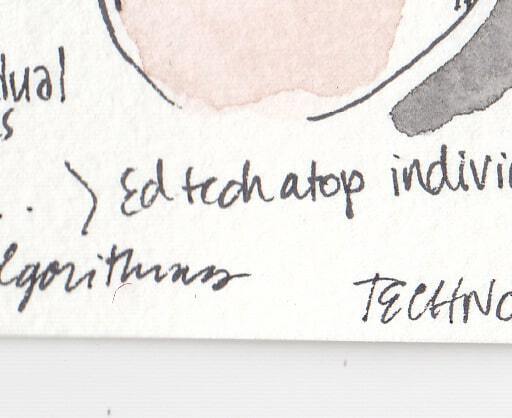 dual
s
> Ed tech atop indivi
algorithms
TECHNO